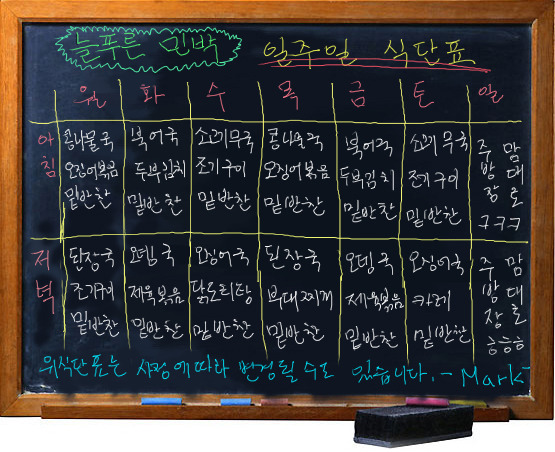 늘푸른 민박 일주일 식단표
월 화 수 목 금 토 일
아침
콩나물국 북어국 소고기무국 콩나물국 북어국 소고기무국
오징어볶음 두부김치 조기구이 오징어볶음 두부김치 조기구이
밑반찬 밑반찬 밑반찬 밑반찬 밑반찬 밑반찬
주방장
맘대로
ㅋㅋㅋ
저녁
된장국 오뎅국 오징어국 된장국 오뎅국 오징어국
조기구이 제육볶음 닭도리탕 부대찌개 제육볶음 카레
밑반찬 밑반찬 밑반찬 밑반찬 밑반찬 밑반찬
주방장
맘대로
ㅎㅎㅎ
위식단표는 사정에따라 변경될 수도 있습니다. - Mark -